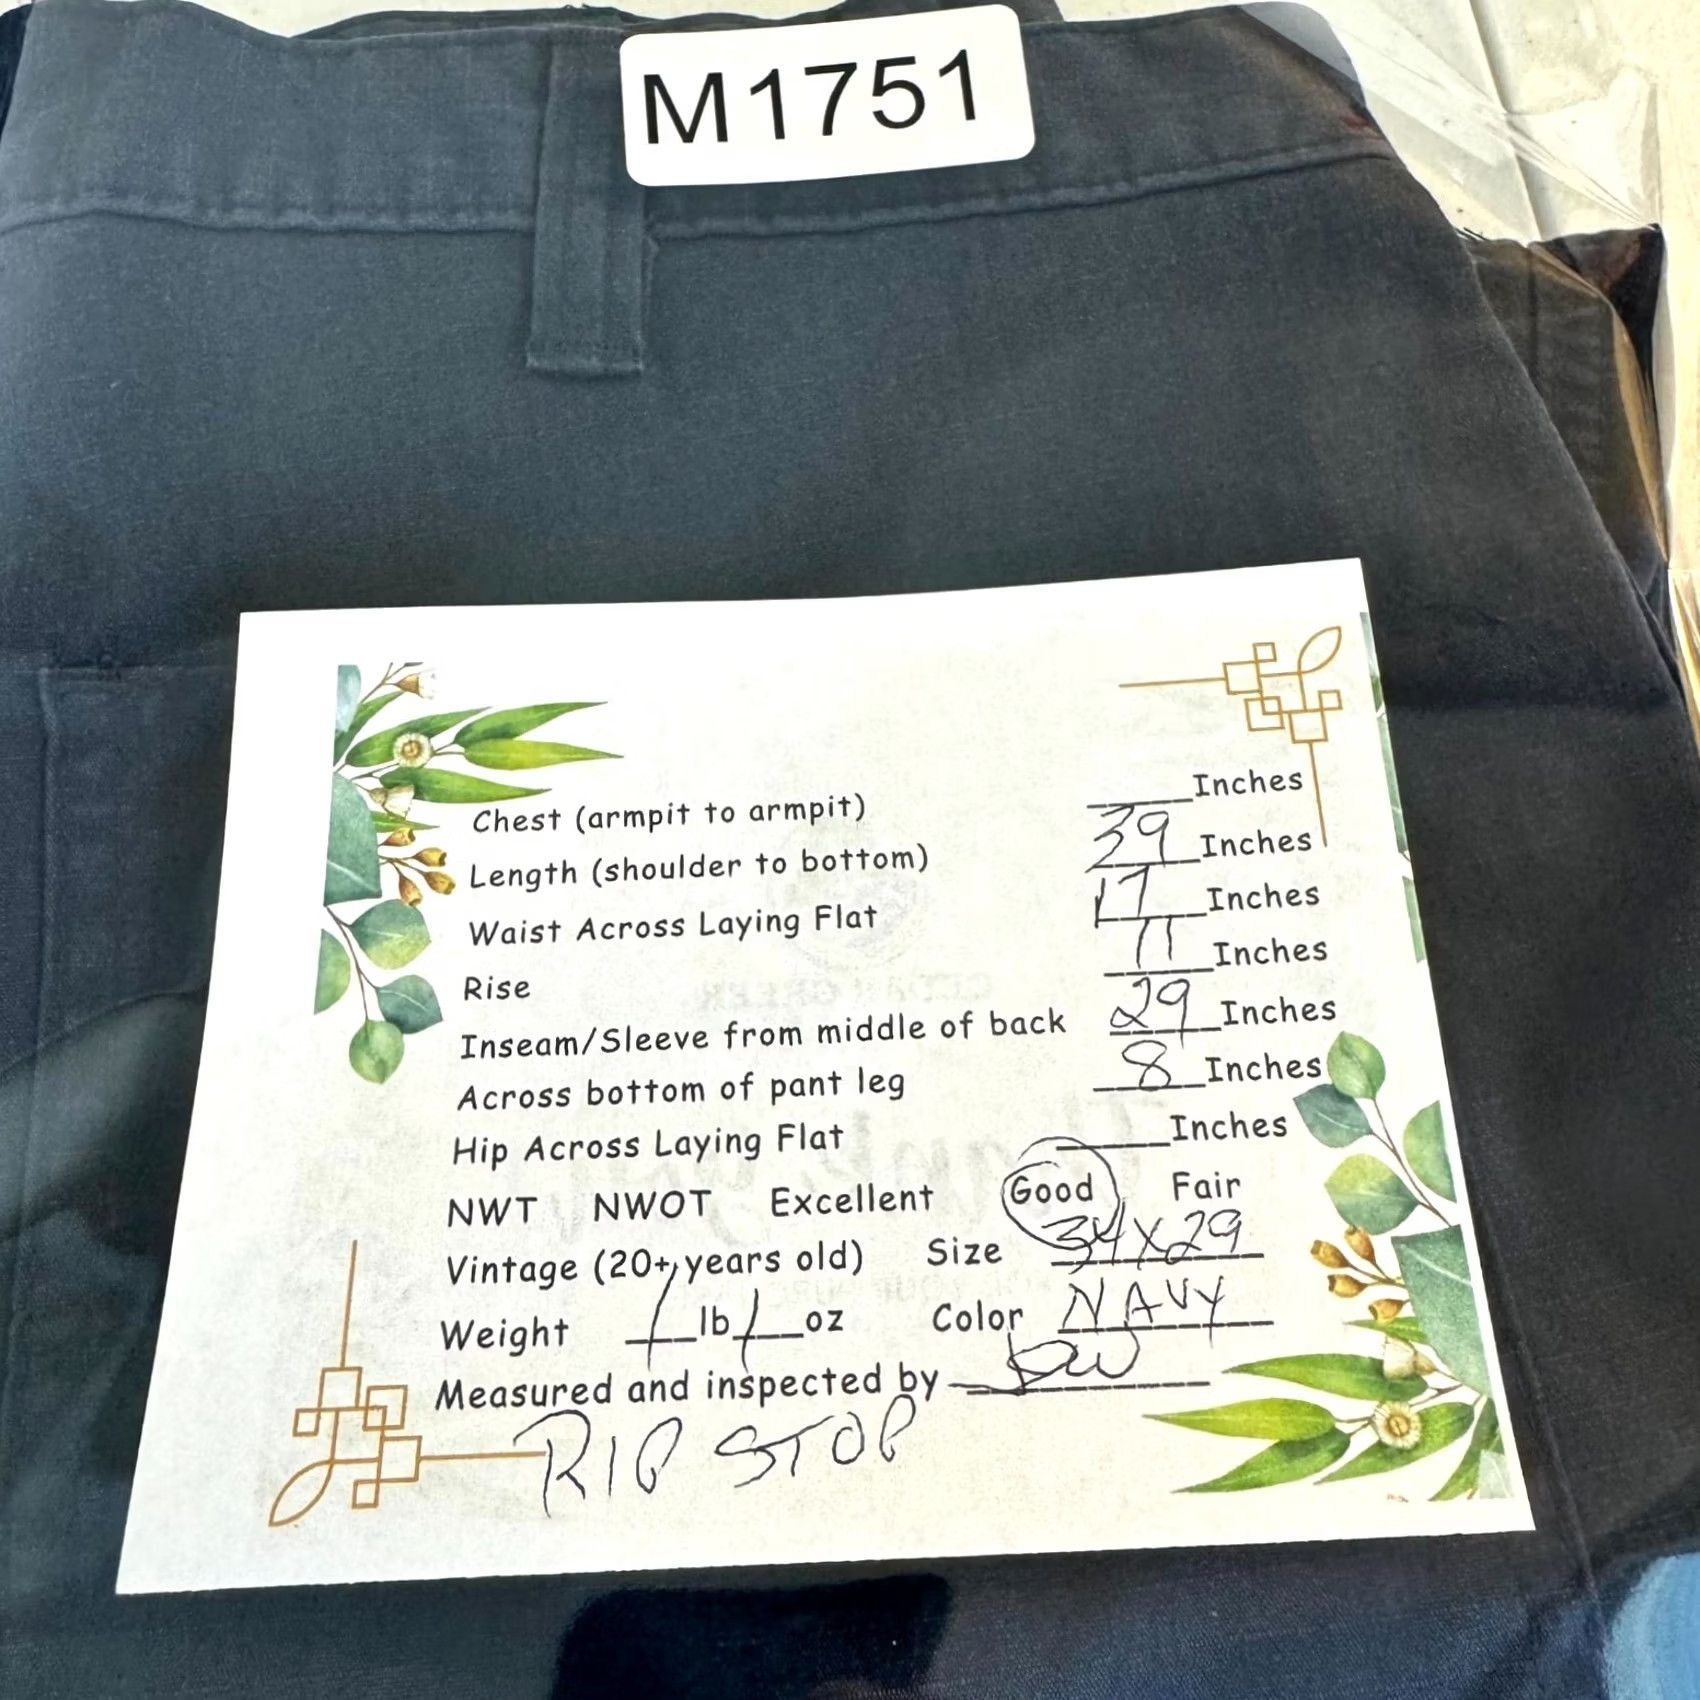 M1751
Chest (armpit to armpit) ____Inches
Length (shoulder to bottom) 39 Inches
Waist Across Laying Flat 17 Inches
Rise 11 Inches
Inseam/Sleeve from middle of back 29 Inches
Across bottom of pant leg 8 Inches
Hip Across Laying Flat ____Inches
NWT NWOT Excellent Good Fair
Vintage (20+ years old) Size 34X29
Weight 1 lb 1 oz Color NAVY
Measured and inspected by
RIP STOP